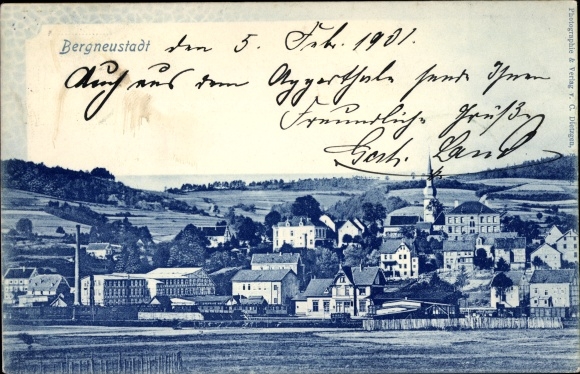 Bergneustadt den 5. Febr. 1901.
Auch aus dem Aggerthale sende Ihnen
Freundliche Grüße
Land
Photographie & Verlag v. C. Dietzgen.